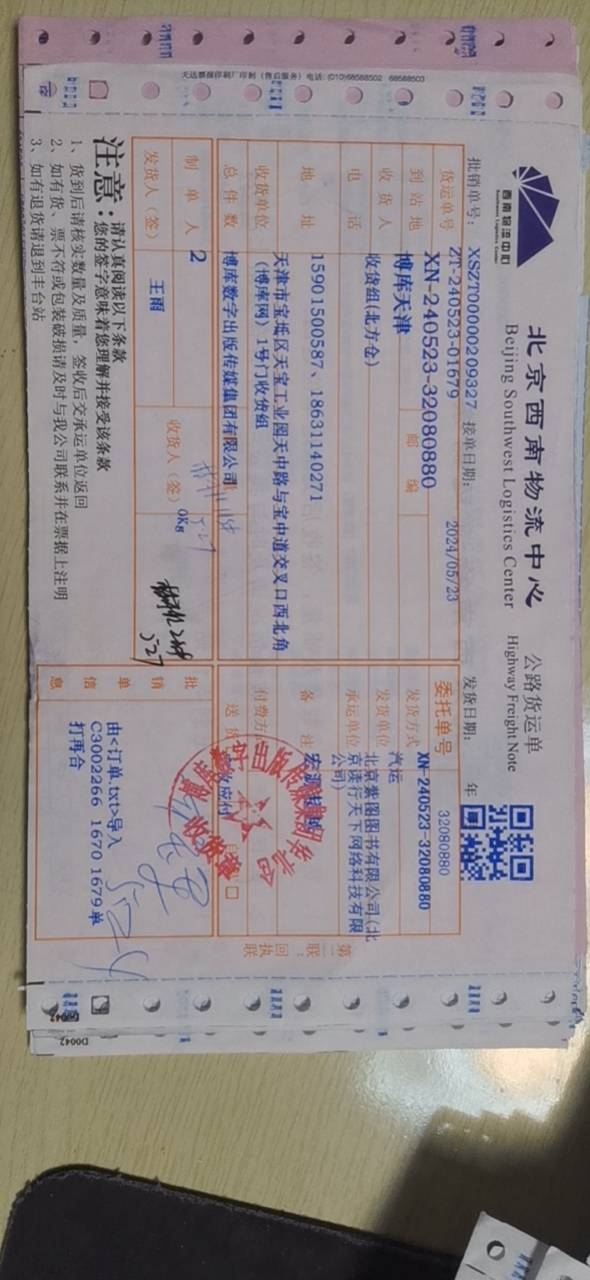 天达票据印制厂印制(售后服务)电话:(010)68588502 68588503
西南物流中心
Southwest Logistics Center
北京西南物流中心 公路货运单
Beijing Southwest Logistics Center Highway Freight Note
批销单号: XSZT00000209327 接单日期: 2024/05/23 发货日期: 年
货运单号 ZT-240523-01679
XN-240523-32080880
委托单号 32080880
XN-240523-32080880
到站地 博库天津 邮编
发货方式 汽运
收货人 收货组(北方仓)
发货单位 北京紫图图书有限公司(北
京读行天下网络科技有限
公司)
电话
承运单位
地址 15901500587、18631140271
天津市宝坻区天宝工业园天中路与宝中道交叉口西北角
(博库网)1号门收货组
备注
收货单位 博库数字出版传媒集团有限公司
付费方
总件数 2
0Kg
送货
应付
制单人 王雨
发货人(签)
收货人(签)
527
批销单信息
由<订单.txt>导入
C3002266 1670 1679单
打再合
第二联:回执联
注意:
请认真阅读以下条款
您的签字意味着您理解并接受该条款
1、货到后请核实数量及质量,签收后交承运单位返回
2、如有货、票不符或包装破损请及时与我公司联系并在票据上注明
3、如有退货请退到丰台站
D0042